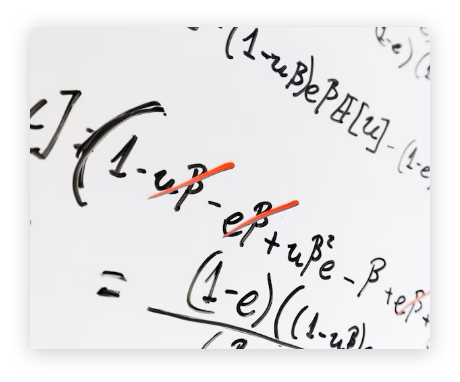 (1-uβ)eβE[u]-(1-e
(1-uβ-eβ+uβ²e-β+eβ+
= (1-e)((1-uβ)